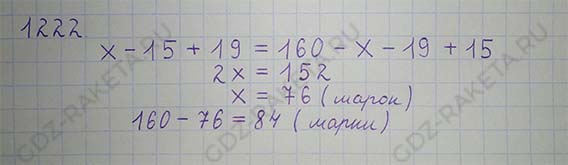 1222
x - 15 + 19 = 160 - x - 19 + 15
2x = 152
x = 76 (марок)
160 - 76 = 84 (марки)
GDZ-RAKETA.RU
GDZ-RAKETA.RU
GDZ-RAKETA.RU